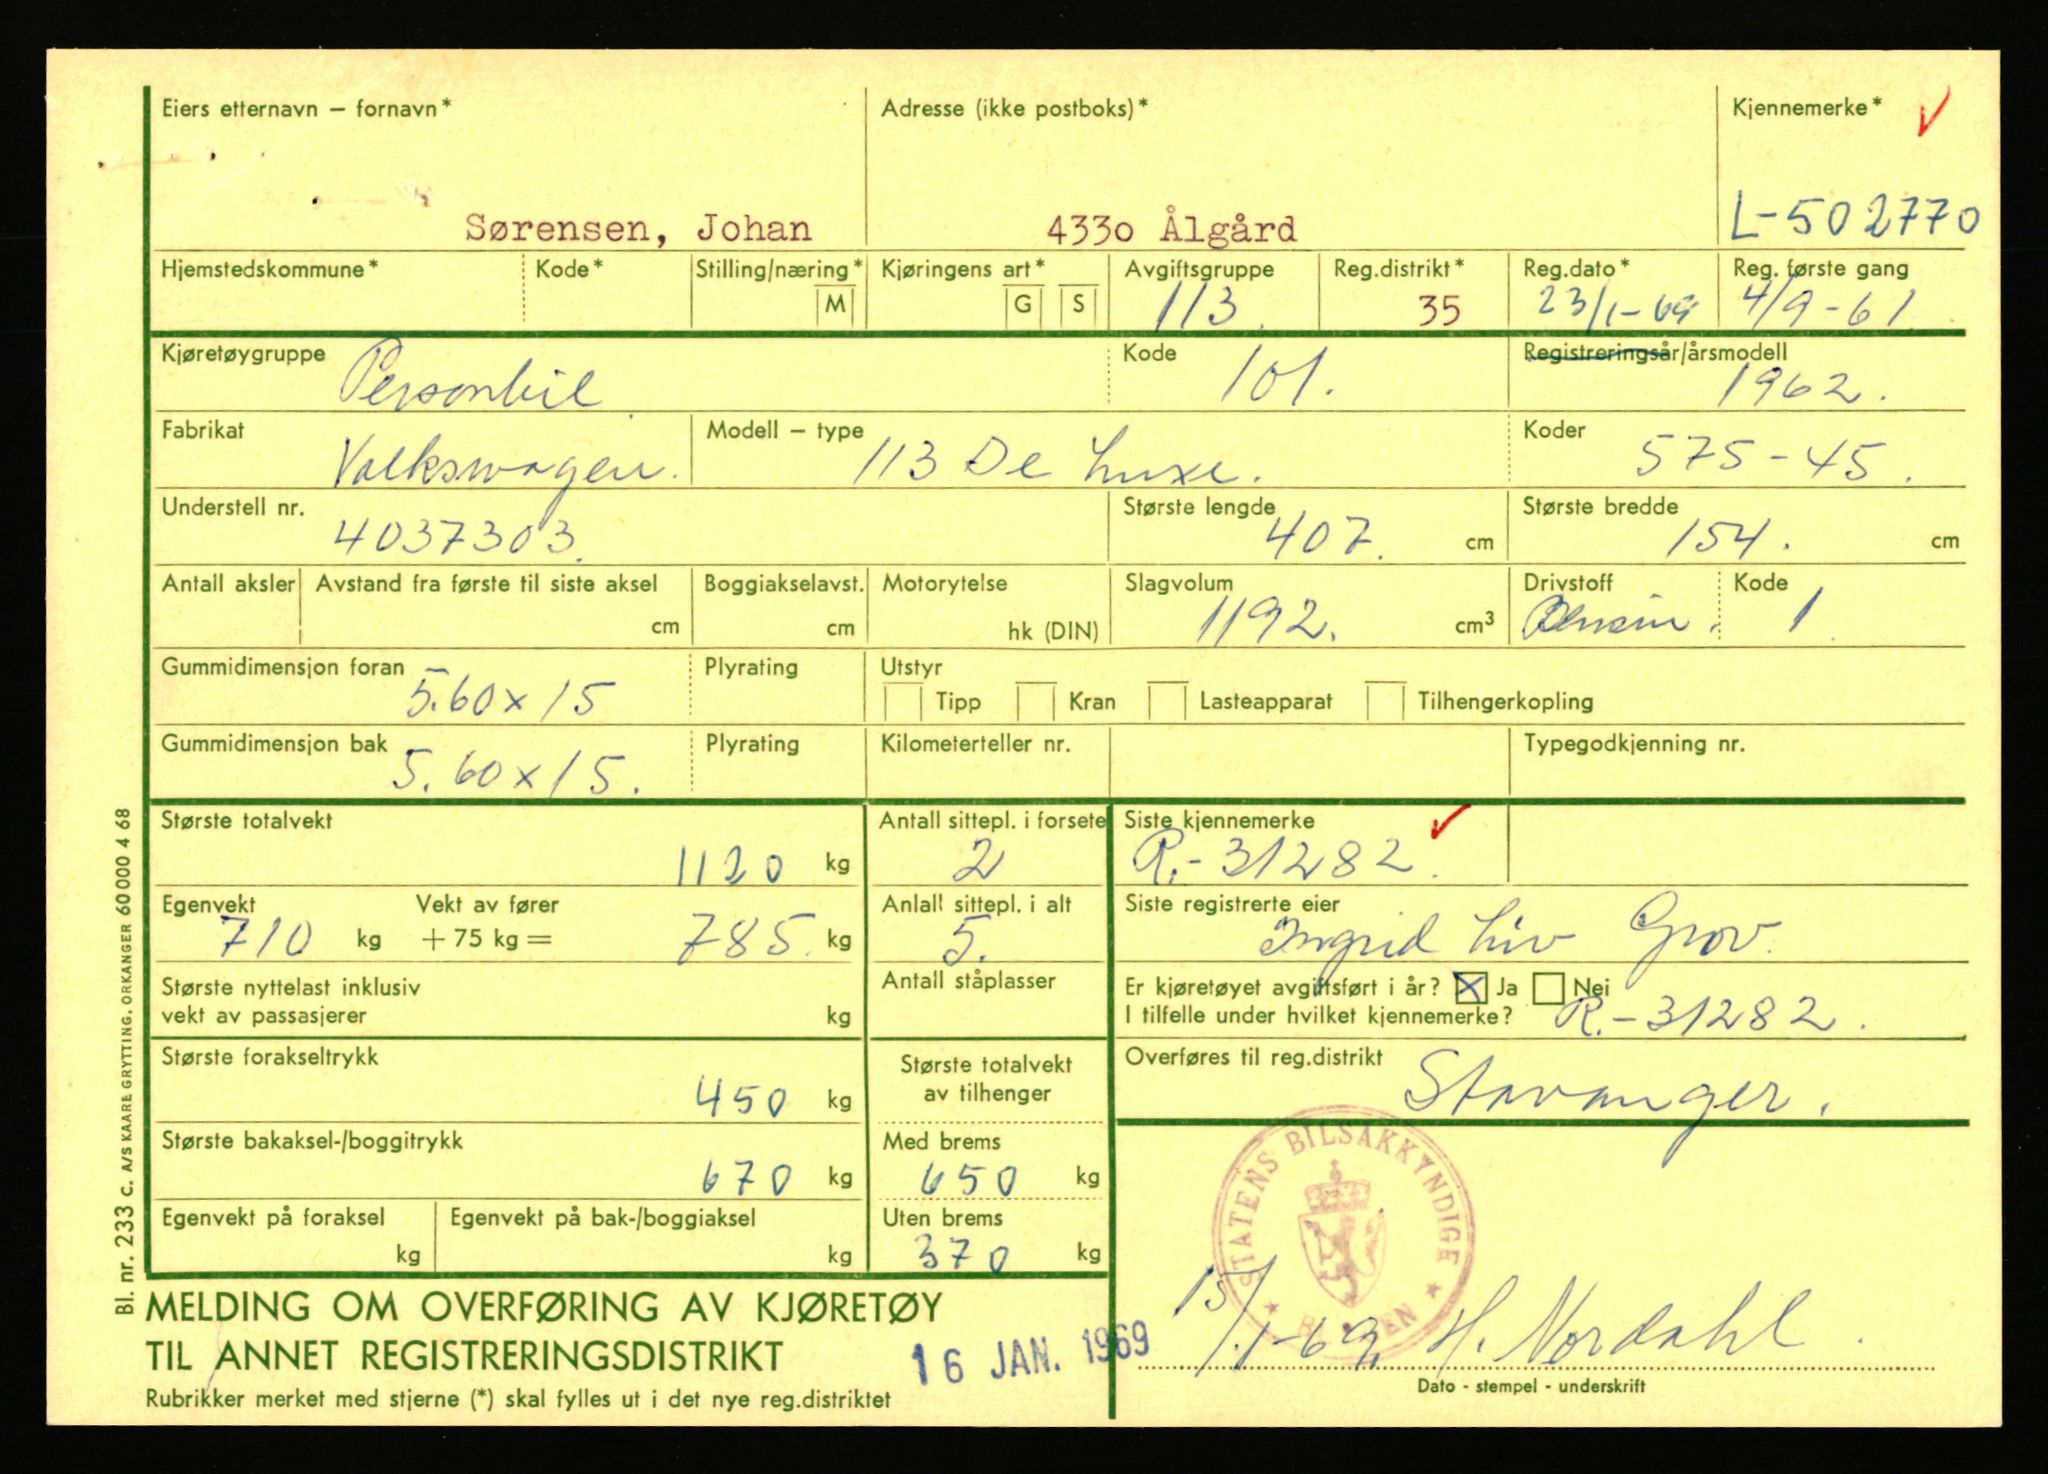 Eiers etternavn – fornavn* Adresse (ikke postboks)* Kjennemerke*
Sørensen, Johan 433o Ålgård L-502770
Hjemstedskommune* Kode* Stilling/næring* Kjøringens art* Avgiftsgruppe Reg.distrikt* Reg.dato* Reg. første gang
M G S 113. 35 23/1-69 4/9-61
Kjøretøygruppe Kode Registreringsår/årsmodell
Personbil 101. 1962.
Fabrikat Modell – type Koder
Volkswagen. 113 De Luxe. 575-45.
Understell nr. Største lengde Største bredde
4037303. 407. cm 154. cm
Antall aksler Avstand fra første til siste aksel Boggiakselavst. Motorytelse Slagvolum Drivstoff Kode
cm cm hk (DIN) 1192. cm³ Bensin. 1
Gummidimensjon foran Plyrating Utstyr
5.60x15 Tipp Kran Lasteapparat Tilhengerkopling
Gummidimensjon bak Plyrating Kilometerteller nr. Typegodkjenning nr.
5.60x15.
Største totalvekt Antall sittepl. i forsete Siste kjennemerke
1120 kg 2 R.-31282.
Egenvekt Vekt av fører Anlall sittepl. i alt Siste registrerte eier
710 kg + 75 kg = 785. kg 5. Ingrid Liv Grov.
Største nyttelast inklusiv Antall ståplasser Er kjøretøyet avgiftsført i år? Ja Nei
vekt av passasjerer kg I tilfelle under hvilket kjennemerke? R.-31282.
Største forakseltrykk Største totalvekt Overføres til reg.distrikt
450 kg av tilhenger Stavanger.
Største bakaksel-/boggitrykk Med brems
670 kg 650 kg
STATENS BILSAKKYNDIGE
Egenvekt på foraksel Egenvekt på bak-/boggiaksel Uten brems
kg kg 370 kg
MELDING OM OVERFØRING AV KJØRETØY
TIL ANNET REGISTRERINGSDISTRIKT 16 JAN. 1969 15/1-69. H. Nordahl
Rubrikker merket med stjerne (*) skal fylles ut i det nye reg.distriktet Dato - stempel - underskrift
Bl. nr. 233 C. A/S KAARE GRYTTING, ORKANGER 60000 4 68